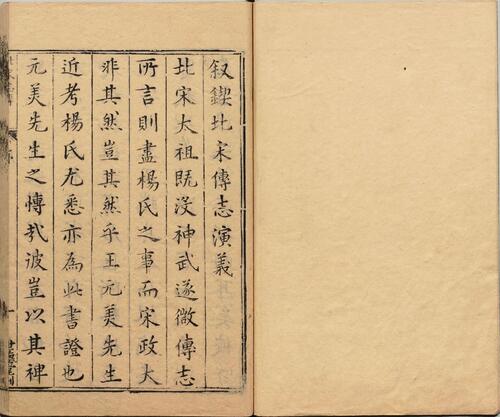 叙鍥北宋傳志演義
北宋太祖既沒神武遂微傳志
所言則盡楊氏之事而宋政大
非其然豈其然乎王元美先生
近考楊氏尤悉亦為此書證也
元美先生之慱哉彼豈以其裨